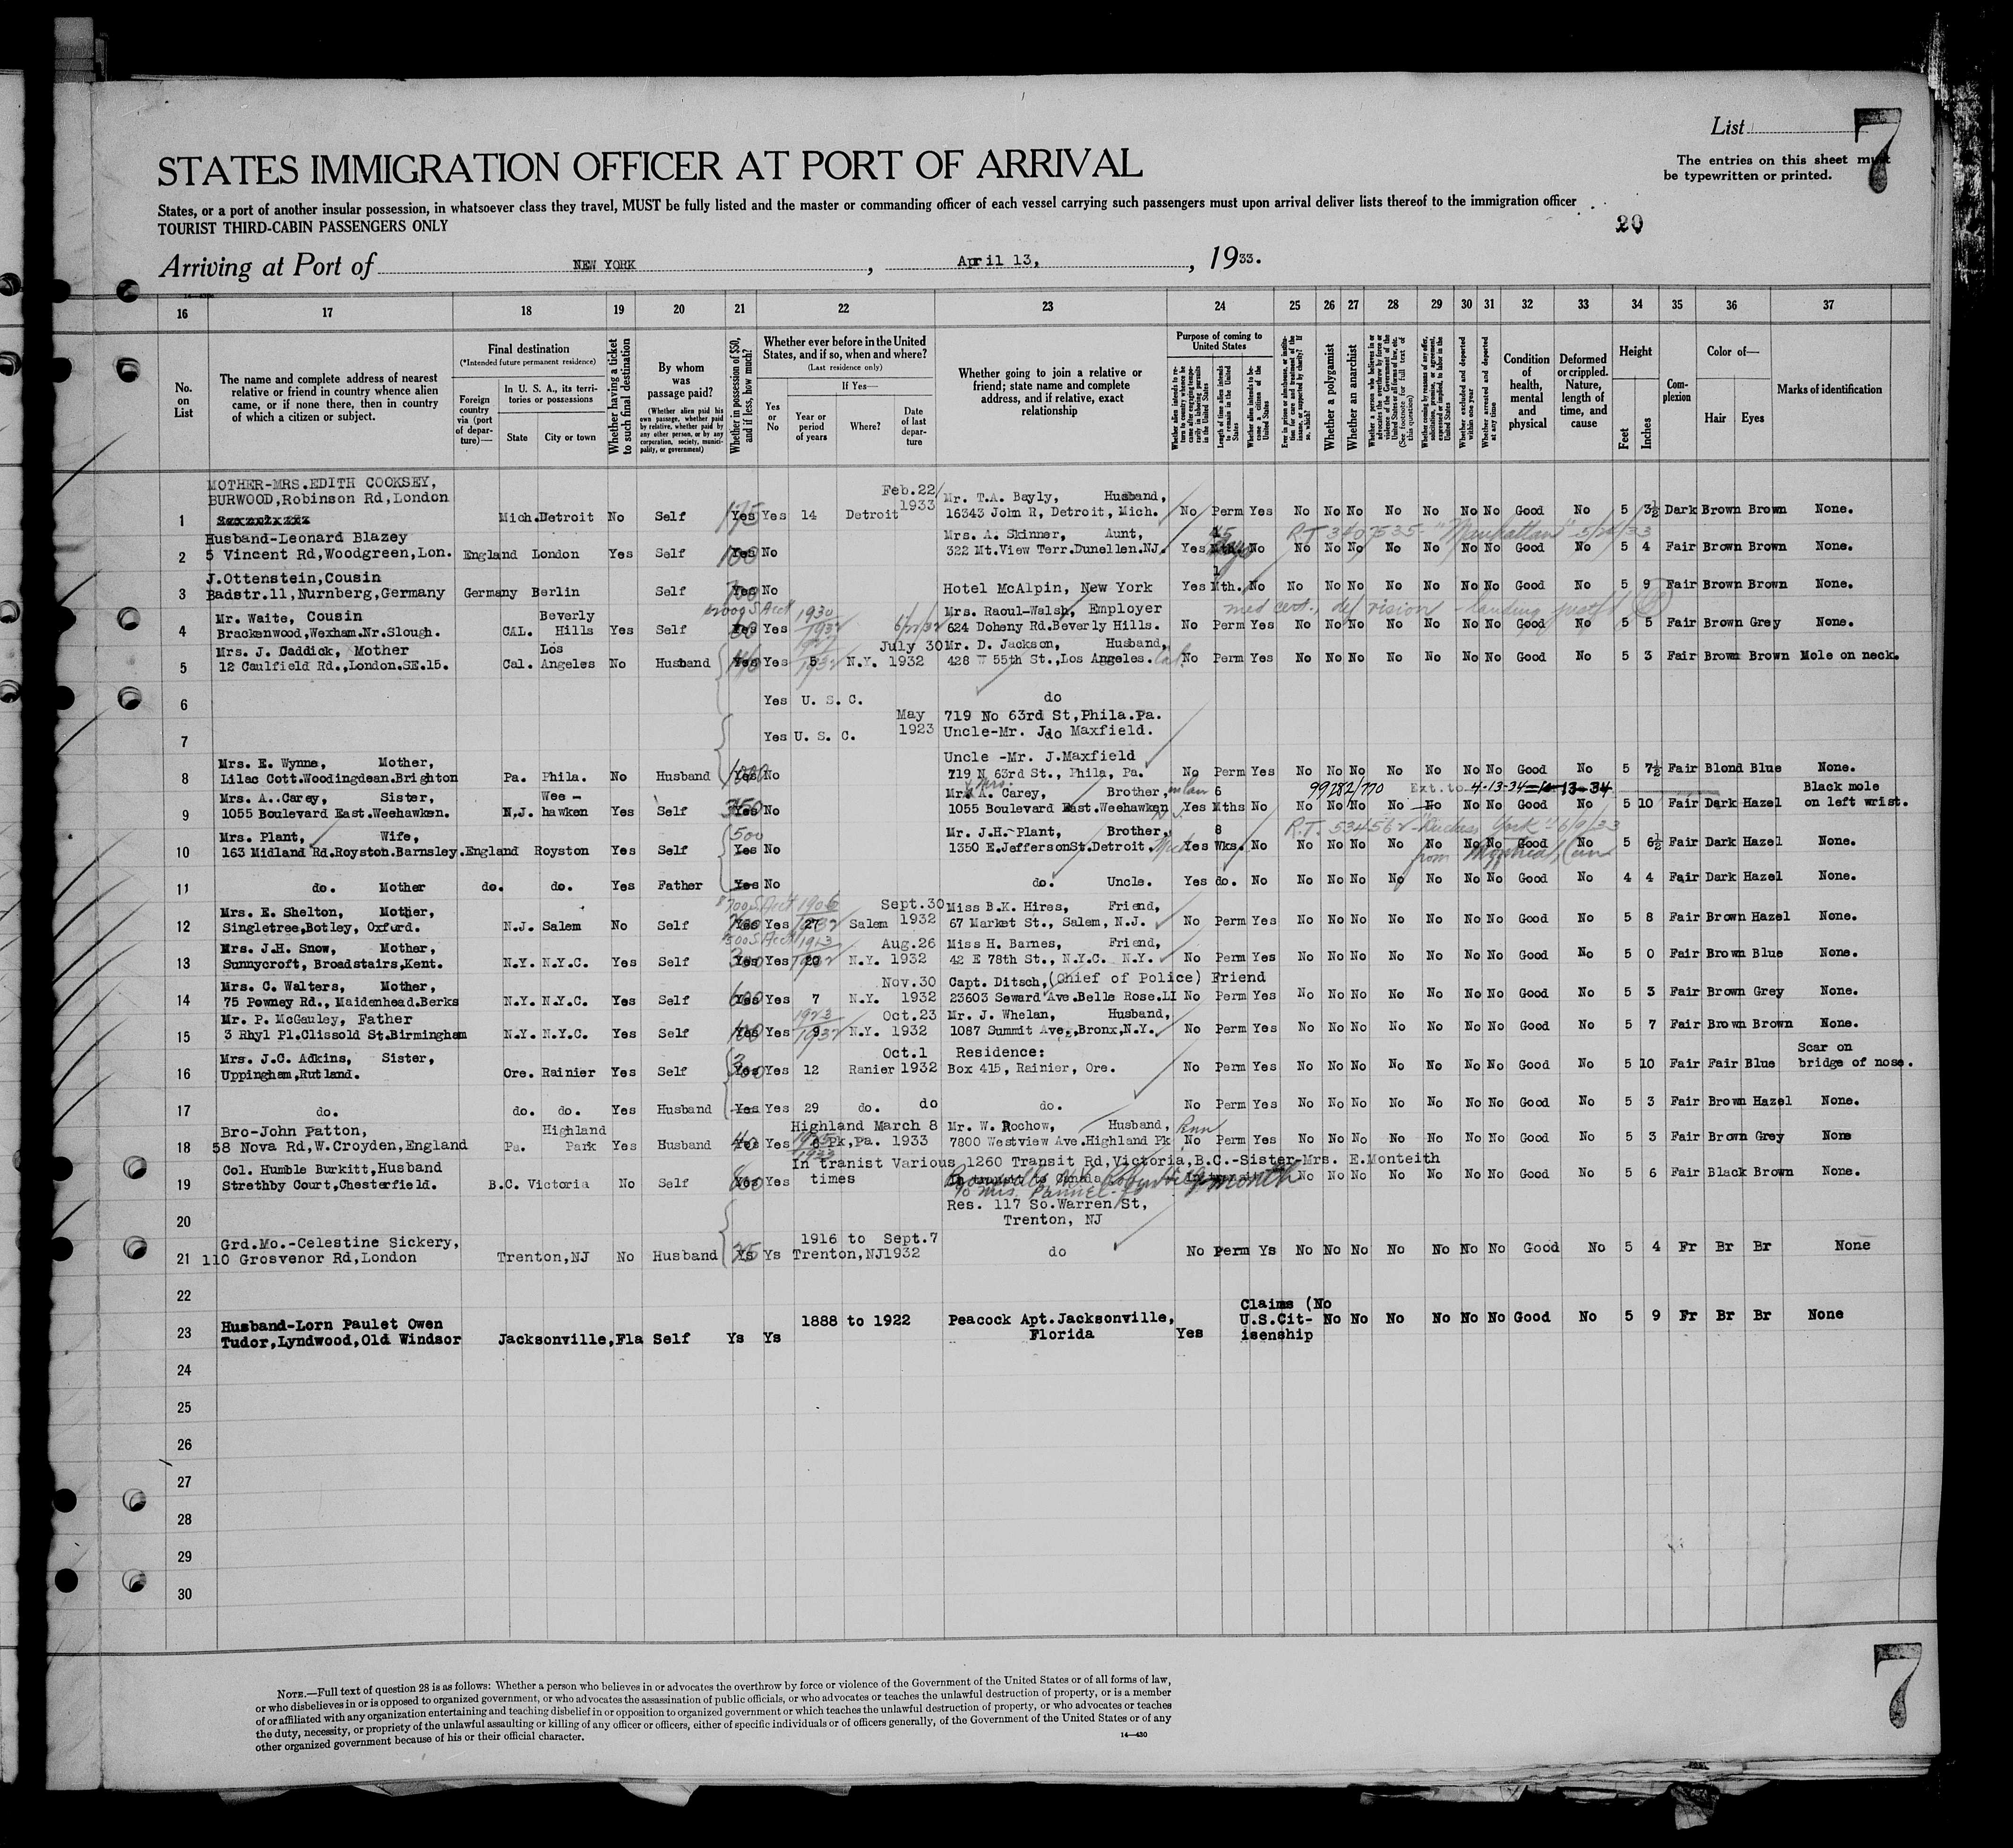 List
7
The entries on this sheet must
be typewritten or printed.
STATES IMMIGRATION OFFICER AT PORT OF ARRIVAL
States, or a port of another insular possession, in whatsoever class they travel, MUST be fully listed and the master or commanding officer of each vessel carrying such passengers must upon arrival deliver lists thereof to the immigration officer
TOURIST THIRD-CABIN PASSENGERS ONLY
20
Arriving at Port of NEW YORK, April 13, 1933.
16 17 18 19 20 21 22 23 24 25 26 27 28 29 30 31 32 33 34 35 36 37
No. on List
The name and complete address of nearest
relative or friend in country whence alien
came, or if none there, then in country
of which a citizen or subject.
Final destination
(*Intended future permanent residence)
Foreign country via (port of departure)—
In U. S. A., its territories or possessions
State City or town
Whether having a ticket to such final destination
By whom was passage paid?
(Whether alien paid his own passage, whether paid by relative, whether paid by any other person, or by any corporation, society, municipality, or government)
Whether in possession of $50, and if less, how much?
Whether ever before in the United States, and if so, when and where?
(Last residence only)
Yes or No
If Yes—
Year or period of years
Where?
Date of last departure
Whether going to join a relative or
friend; state name and complete
address, and if relative, exact
relationship
Purpose of coming to United States
Length of time alien intends to remain in the United States
Whether alien intends to become a citizen of the United States
Whether a polygamist
Whether an anarchist
Whether excluded and deported within one year
Whether arrested and deported at any time
Condition of health, mental and physical
Deformed or crippled. Nature, length of time, and cause
Height
Feet Inches
Complexion
Color of—
Hair Eyes
Marks of identification
MOTHER-MRS.EDITH COOKSEY,
BURWOOD,Robinson Rd,London
Feb.22 1933 Mr. T.A. Bayly, Husband,
1 Mich. Detroit No Self Yes Yes 14 Detroit 16343 John R, Detroit, Mich. No Perm Yes No No No No No No No Good No 5 3½ Dark Brown Brown None.
Husband-Leonard Blazey Mrs. A. Skinner, Aunt, "Manhattan" 5/24/33
2 5 Vincent Rd,Woodgreen,Lon. England London Yes Self Yes No 322 Mt.View Terr.Dunellen.NJ. Yes No No No No No No No No Good No 5 4 Fair Brown Brown None.
J.Ottenstein,Cousin 1
3 Badstr.11,Nurnberg,Germany Germany Berlin Self Yes No Hotel McAlpin, New York Yes Mth. No No No No No No No No Good No 5 9 Fair Brown Brown None.
Mr. Waite, Cousin Beverly 1930 Mrs. Raoul-Walsh, Employer med cert., def vision - landing
4 Brackenwood,Wexham.Nr.Slough. CAL. Hills Yes Self Yes Yes 1932 624 Doheny Rd.Beverly Hills. No Perm Yes No No No No No No No Good No 5 5 Fair Brown Grey None.
Mrs. J. Caddick, Mother Los July 30 Mr. D. Jackson, Husband,
5 12 Caulfield Rd.,London.SE.15. Cal. Angeles No Husband Yes Yes 5 N.Y. 1932 428 W 55th St.,Los Angeles. Cal. No Perm Yes No No No No No No No Good No 5 3 Fair Brown Brown Mole on neck.
6 Yes U. S. C. do
May 1923 719 No 63rd St,Phila.Pa.
7 Yes U. S. C. Uncle-Mr. J. Maxfield. do
Mrs. E. Wynne, Mother, Uncle -Mr. J.Maxfield
8 Lilac Cott.Woodingdean.Brighton Pa. Phila. No Husband 1000 Yes No 719 N 63rd St., Phila, Pa. No Perm Yes No No No No No No No Good No 5 7½ Fair Blond Blue None.
Mrs. A. Carey, Sister, Wee- A. Carey, Brother, in law 6 99282/770 Ext. to 4-13-34 10-13-34 Black mole
9 1055 Boulevard East.Weehawken. N.J. hawken Yes Self 350 Yes No 1055 Boulevard East.Weehawken N.J. Yes Mths No No No No No No No No Good No 5 10 Fair Dark Hazel on left wrist.
Mrs. Plant, Wife, 500 Mr. J.H. Plant, Brother, 8 R.T. "Duchess York" 6/9/33
10 163 Midland Rd.Royston.Barnsley. England Royston Yes Self Yes No 1350 E.JeffersonSt.Detroit. Mich Yes Wks. No No No No No No No No Good No 5 6½ Fair Dark Hazel None.
from Montreal, Can
11 do. Mother do. do. Yes Father Yes No do. Uncle. Yes do. No No No No No No No No Good No 4 4 Fair Dark Hazel None.
Mrs. E. Shelton, Mother, Sept.30 Miss B.K. Hires, Friend,
12 Singletree,Botley, Oxfurd. N.J. Salem No Self Yes Yes 27 Salem 1932 67 Market St., Salem, N.J. No Perm Yes No No No No No No No Good No 5 8 Fair Brown Hazel None.
Mrs. J.H. Snow, Mother, 1913 Aug.26 Miss H. Barnes, Friend,
13 Sunnycroft, Broadstairs,Kent. N.Y. N.Y.C. Yes Self Yes Yes 20 N.Y. 1932 42 E 78th St., N.Y.C. N.Y. No Perm Yes No No No No No No No Good No 5 0 Fair Brown Blue None.
Mrs. C. Walters, Mother, Nov.30 Capt. Ditsch,(Chief of Police) Friend
14 75 Powney Rd., Maidenhead.Berks N.Y. N.Y.C. Yes Self 600 Yes Yes 7 N.Y. 1932 23603 Seward Ave.Belle Rose.LI No Perm Yes No No No No No No No Good No 5 3 Fair Brown Grey None.
Mr. P. McGauley, Father 1923 Oct.23 Mr. J. Whelan, Husband,
15 3 Rhyl Pl.Clissold St.Birmingham N.Y. N.Y.C. Yes Self 100 Yes Yes 9 1932 N.Y. 1932 1087 Summit Ave.,Bronx,N.Y. No Perm Yes No No No No No No No Good No 5 7 Fair Brown Brown None.
Mrs. J.C. Adkins, Sister, Oct.1 Residence: Scar on
16 Uppingham,Rutland. Ore. Rainier Yes Self Yes Yes 12 Ranier 1932 Box 415, Rainier, Ore. No Perm Yes No No No No No No No Good No 5 10 Fair Fair Blue bridge of nose.
17 do. do. do. Yes Husband Yes Yes 29 do. do do. No Perm Yes No No No No No No No Good No 5 3 Fair Brown Hazel None.
Bro-John Patton, Highland Highland March 8 Mr. W. Rochow, Husband, Penn
18 58 Nova Rd,W.Croyden,England Pa. Park Yes Husband 40 Yes Yes 8 Pk,Pa. 1933 7800 Westview Ave.Highland Pk No Perm Yes No No No No No No No Good No 5 3 Fair Brown Grey None
Col. Humble Burkitt,Husband In tranist Various 1260 Transit Rd,Victoria,B.C.-Sister-Mrs. E.Monteith
19 Strethby Court,Chesterfield. B.C. Victoria No Self 600 Yes Yes times In transit to Canada month No No No No No No No Good No 5 6 Fair Black Brown None.
Res. 117 So.Warren St,
20 Trenton, NJ
Grd.Mo.-Celestine Sickery, 1916 to Sept.7
21 110 Grosvenor Rd,London Trenton,NJ No Husband Ys Ys Trenton,NJ 1932 do No Perm Ys No No No No No No No Good No 5 4 Fr Br Br None
22
Claims (No
Husband-Lorn Paulet Owen 1888 to 1922 Peacock Apt.Jacksonville, U.S.Cit- No No No No No No Good No 5 9 Fr Br Br None
23 Tudor,Lyndwood,Old Windsor Jacksonville,Fla Self Ys Ys Florida Yes isenship
24
25
26
27
28
29
30
NOTE.—Full text of question 28 is as follows: Whether a person who believes in or advocates the overthrow by force or violence of the Government of the United States or of all forms of law,
or who disbelieves in or is opposed to organized government, or who advocates the assassination of public officials, or who advocates or teaches the unlawful destruction of property, or is a member
of or affiliated with any organization entertaining and teaching disbelief in or opposition to organized government or which teaches the unlawful destruction of property, or who advocates or teaches
the duty, necessity, or propriety of the unlawful assaulting or killing of any officer or officers, either of specific individuals or of officers generally, of the Government of the United States or of any
other organized government because of his or their official character.
14—430
7